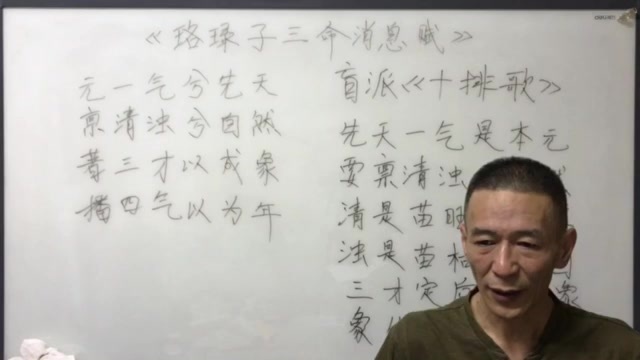 《珞琭子三命消息赋》
元一气兮先天
禀清浊兮自然
著三才以成象
播四气以为年
盲派《十排歌》
先天一气是本元
要禀清浊
清是苗旺
浊是苗枯
三才定 象
象